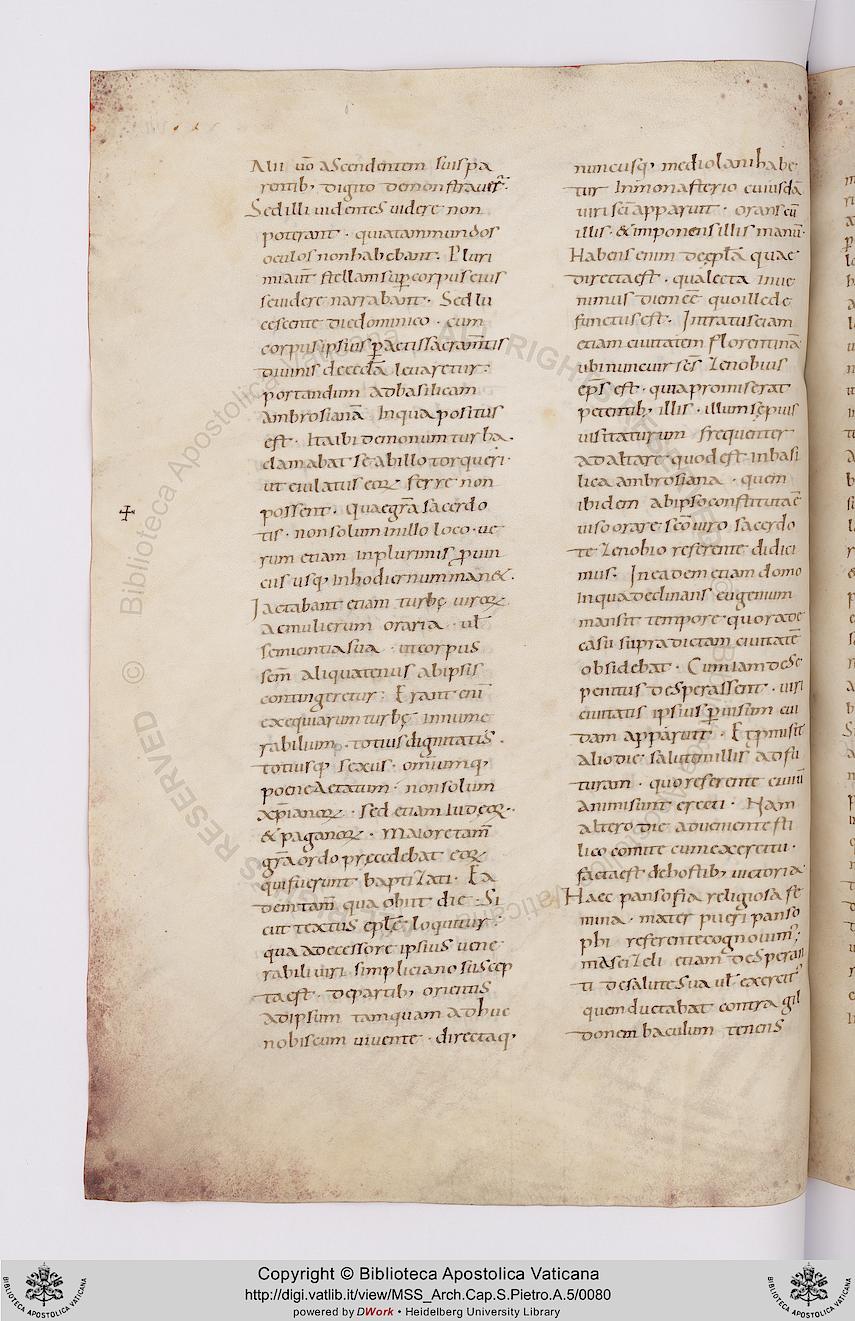 Alii ũo ascendentem suis pa
rentib; digito demonstraver̃.
Sed illi videntes videre non
poterant · quia tam mundos
oculos non habebant. Pluri
mi aut̃ stellam suꝑ corpus eius
se videre narrabant. Sed lu
cescente die dominico · cum
corpus ipsius ꝑactis sacram̃tis
divinis de eccl̃a levaretur ·
portandum ad basilicam
ambrosianã in qua positus
est. Ita ibi demonum turba
clamabat se ab illo torqueri ·
ut eiulatus eoꝝ ferre non
possent. quae gr̃a sacerdo
tis · non solum in illo loco · ve
rum etiam in plurimis ꝓvin
ciis usq; in hodiernum man&.
Iactabant etiam turbę viroꝝ
ac mulierum oraria · ul̃
semicintia sua · ut corpus
sc̃m aliquatenus ab ipsis
contingeretur · Erant enĩ
exequiarum turbę innume
rabilium · totius dignitatis ·
totiusq; sexus · omniumq;
poene aetatum · non solum
xp̃ianoꝝ · sed etiam iudeoꝝ ·
& paganoꝝ · Maiore tam̃
gr̃a ordo precedebat eoꝝ
qui fuerunt baptizati. Ea
dem tam̃ qua obiit die · Si
cut textus epl̃e loquitur ·
qua a decessore ipsius vene
rabili viri simpliciano suscep
ta est · de partib; orientis
ad ipsum tamquam adhuc
nobiscum vivente · directaq;
nuncusq; mediolani habe
tur in monasterio cuiusdã
viri sc̃i apparuit · orans cũ
illis · & imponens illis manũ ·
Habens enim de epl̃a quae
directa est · qua lecta inve
nimus diem eẽ quo ille de
functus est. In tratus eiam
etiam civitatem florentinã
ubi nunc vir sc̃s Zenobius
ep̃s est · quia promiserat
petentib; illis · illum sępius
visitaturum frequenter
ad altare quod est in basi
lica ambrosiana · quem
ibidem ab ipso constituta ẽ
viso orare sc̃o viro sacerdo
te Zenobio referente didici
mus. In eadem etiam domo
in qua declinans eugenium
mansit tempore quo rade
casii supradictam civitatẽ
obsidebat · Cum iam de se
penitus desperassent · viri
civitatis ipsius ꝑ visum cui
dam apparuit. Et ꝓmisit
alio die salutem illis adfu
turam · quo referente civiũ
animi sunt erecti. Nam
altero die adveniente sti
lico comite cum exercitu ·
facta est de hostib; victoria
Haec pansofia religiosa fe
mina · mater pueri panso
phi referente cognovim;
mascizeli etiam desperan
ti de salute sua ul̃ exercit;
quem ductabat contra gil
donem baculum tenens
Copyright © Biblioteca Apostolica Vaticana
http://digi.vatlib.it/view/MSS_Arch.Cap.S.Pietro.A.5/0080
powered by DWork • Heidelberg University Library